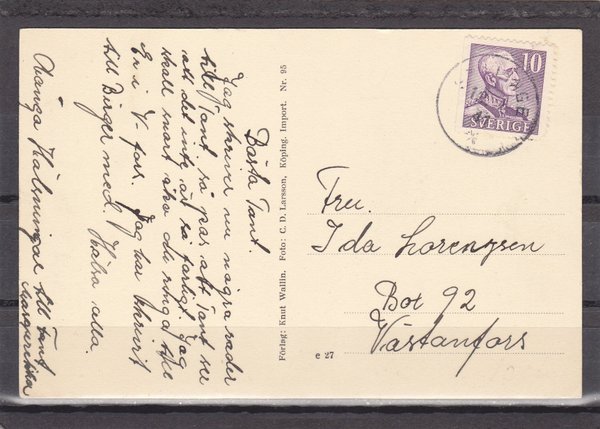 Bästa Tant.
Jag skriver nu några rader
till Tant så pas att Tant ser
att det inte är så farligt. Jag
skall snart ska du ringa
Er i V-fors. Jag har skrivit
till Birger med. Hälsa alla.
Många Hälsningar till Tant
Margaretha
Förlag: Knut Wallin. Foto: C. D. Larsson, Köping. Import. Nr. 95
e 27
10
SVERIGE
Fru.
Ida Lorengsen
Box 92
Västanfors